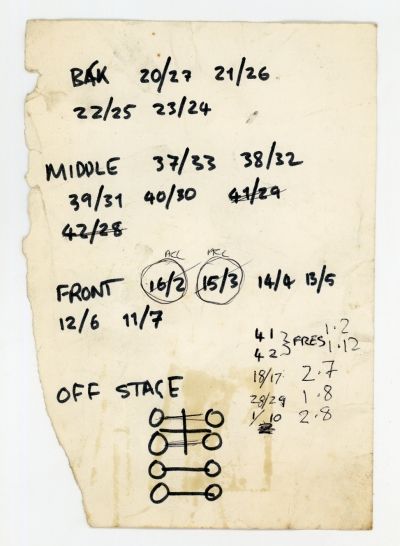 BAK 20/27 21/26
22/25 23/24
MIDDLE 37/33 38/32
39/31 40/30 41/29
42/28
ACC ACC
FRONT 16/2 15/3 14/4 13/5
12/6 11/7
41 } PRES 1.2
42 } 1.12
18/17 2.7
28/29 1.8
1/10 2.8
OFF STAGE